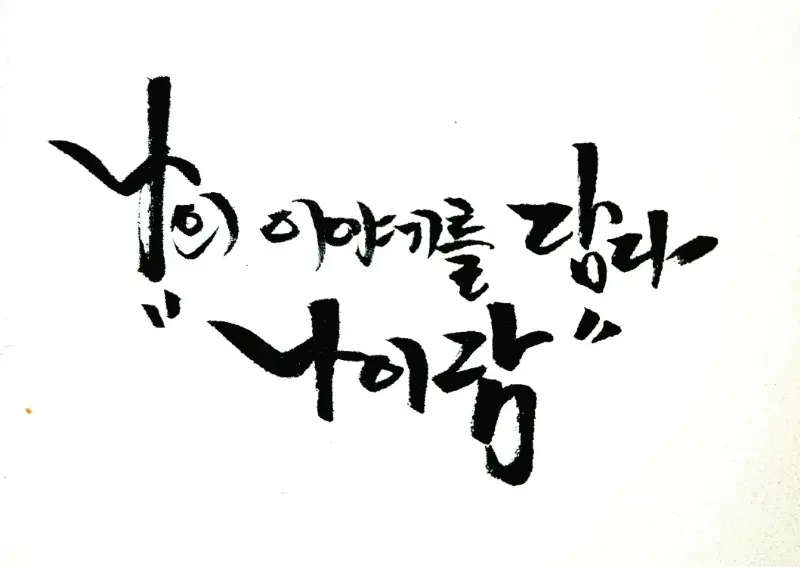 나의 이야기를 담다
"나이람"